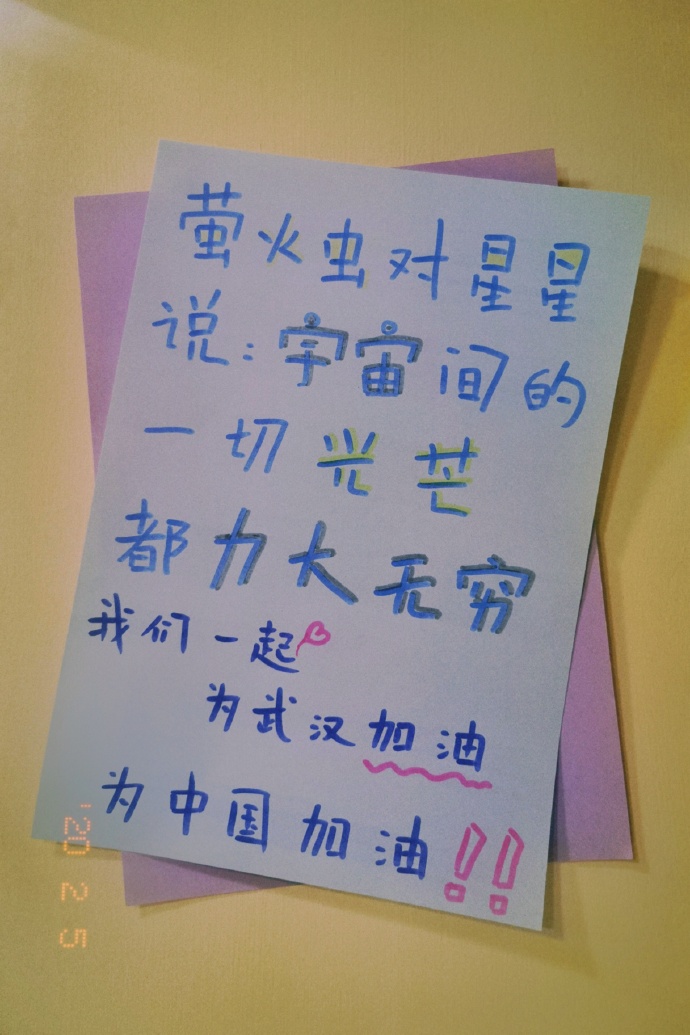 萤火虫对星星
说:宇宙间的
一切光芒
都力大无穷
我们一起
为武汉加油
为中国加油!!
'20 2 5